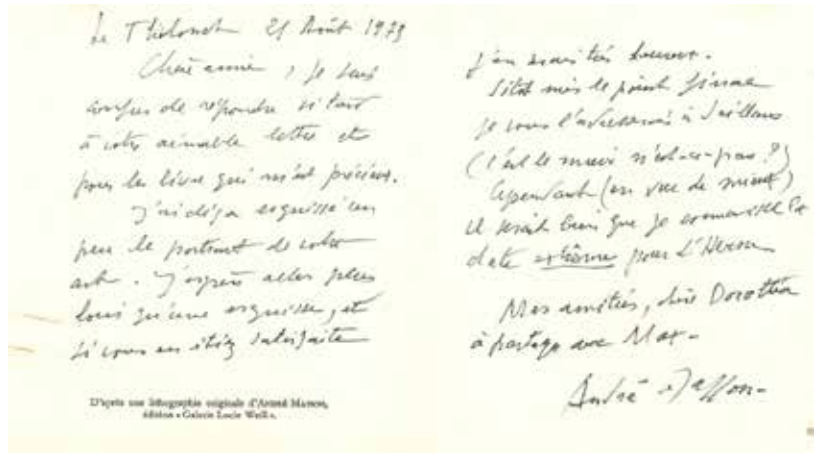 Le Tholonet 21 Août 1973
Chère amie, je suis
confus de répondre si tard
à votre aimable lettre et
pour le livre qui m'est précieux.
J'ai déjà esquissé un
peu le portrait de votre
art. J'espère aller plus
loin qu'une esquisse, et
si vous en étiez satisfaite
D'après une lithographie originale d'André Masson,
édition « Galerie Lucie Weill ».
j'en serais très heureux.
Sitôt mis le point final
je vous l'adresserai à Seillans
(c'est le mieux n'est-ce-pas ?)
Cependant (en vue de mieux)
il serait bien que je connaisse la
date extrême pour
Mes amitiés, chère Dorothéa
à partager avec Max -
André Masson -